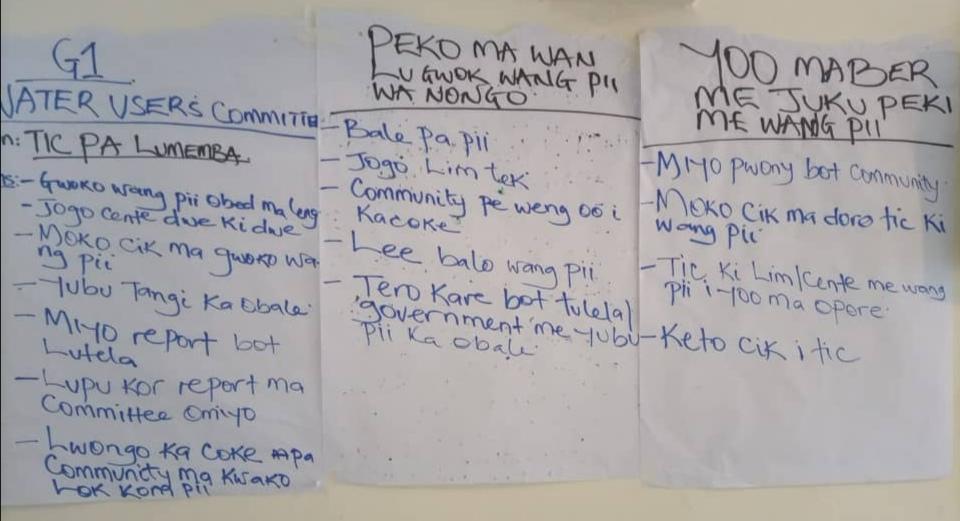 G1
WATER USER'S COMMITTE
n: TIC PA LUMEMBA
s:- Gwoko wang pii obed maleng
- Jogo cente dwe ki dwe
- MOKO Cik ma gwoko wa
ng pii
- Yubu Tangi Ka Obale
- MIYO report bot
Lutela
- Lupu Kor report ma
Committee Omiyo
- Lwongo Ka Coke pa
Community ma Kwako
Lok Kom pii
PEKO MA WAN
LUGWOK WANG PII
WA NONGO
- Bale pa pii
- Jogo Lim tek
- Community pe weng oo i
Kacoke
- Lee balo wang pii
- Tero Kare bot tulela/
government me yubu
pii Ka obale
YOO MABER
ME JUKU PEKI
ME WANG PII
- MIYO pwony bot community
- MOKO Cik ma doro tic Ki
wang pii
- Tic Ki Lim/Cente me wang
pii i yoo ma opore
- Keto cik i tic